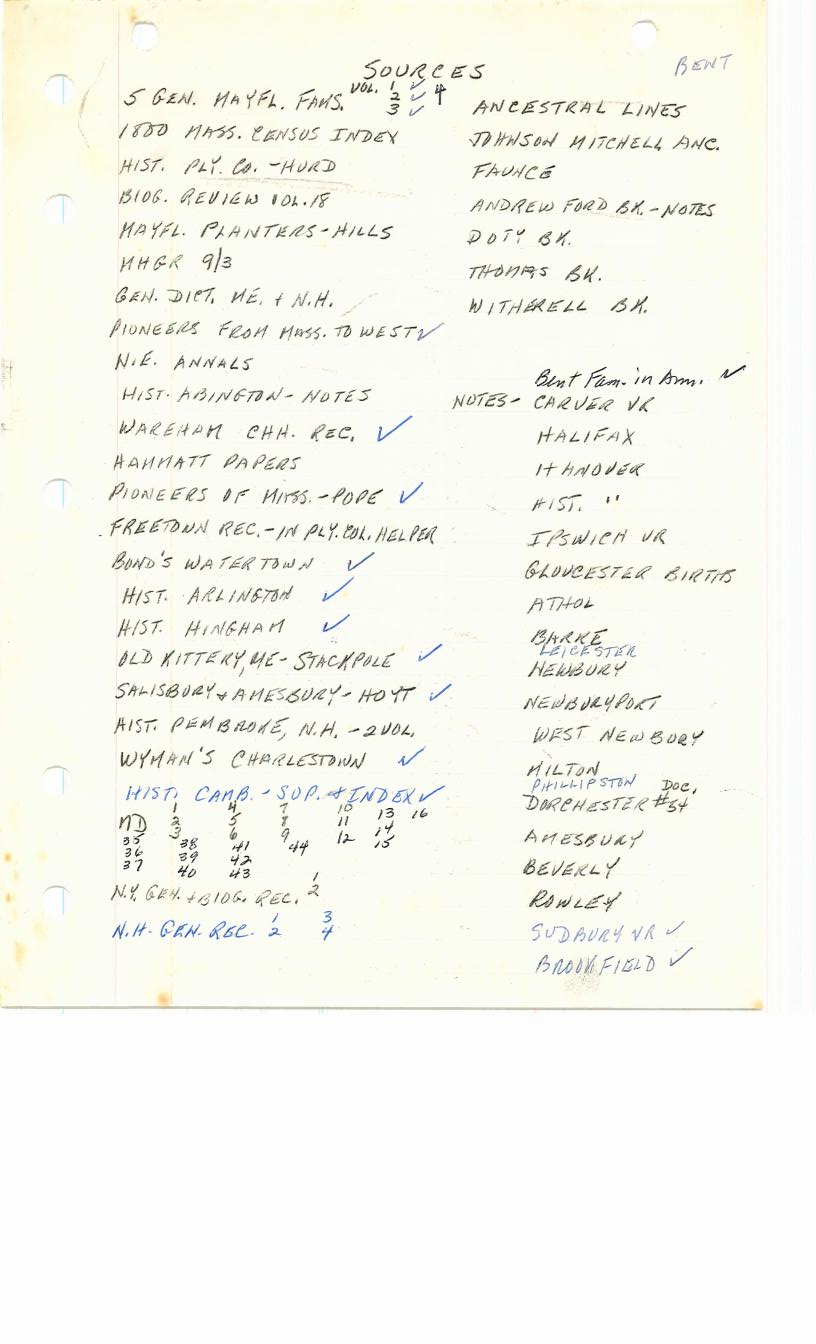 SOURCES
BENT
5 GEN. MAYFL. FAMS. VOL. 1 ✓ 4
2 ✓
3 ✓
1800 MASS. CENSUS INDEX
HIST. PLY. CO. - HURD
BIOG. REVIEW VOL. 18
MAYFL. PLANTERS - HILLS
MHGR 9/3
GEN. DICT. ME. + N.H.
PIONEERS FROM MASS. TO WEST ✓
N.E. ANNALS
HIST. ABINGTON - NOTES
WAREHAM CHH. REC. ✓
HAMMATT PAPERS
PIONEERS OF MASS. - POPE ✓
FREETOWN REC. - IN PLY. COL. HELPER
BOND'S WATERTOWN ✓
HIST. ARLINGTON ✓
HIST. HINGHAM ✓
OLD KITTERY, ME - STACKPOLE ✓
SALISBURY + AMESBURY - HOYT ✓
HIST. PEMBROKE, N.H. - 2 VOL.
WYMAN'S CHARLESTOWN ✓
HIST. CAMB. - SUP. + INDEX ✓
1 4 7 10 13 16
MD 2 5 8 11 14
3 6 9 12 15
35 38 41 44
36 39 42
37 40 43
N.Y. GEN. + BIOG. REC. 1 2
N.H. GEN. REC. 1 2 3 4
ANCESTRAL LINES
JOHNSON MITCHELL ANC.
FAUNCE
ANDREW FORD BK. - NOTES
DOTY BK.
THOMAS BK.
WITHERELL BK.
Bent Fam. in Am. ✓
NOTES - CARVER VR
HALIFAX
HANOVER
HIST. "
IPSWICH VR
GLOUCESTER BIRTHS
ATHOL
BARRE
LEICESTER
NEWBURY
NEWBURYPORT
WEST NEWBURY
MILTON
PHILLIPSTON
DORCHESTER DOC. #54
AMESBURY
BEVERLY
ROWLEY
SUDBURY VR ✓
BROOKFIELD ✓